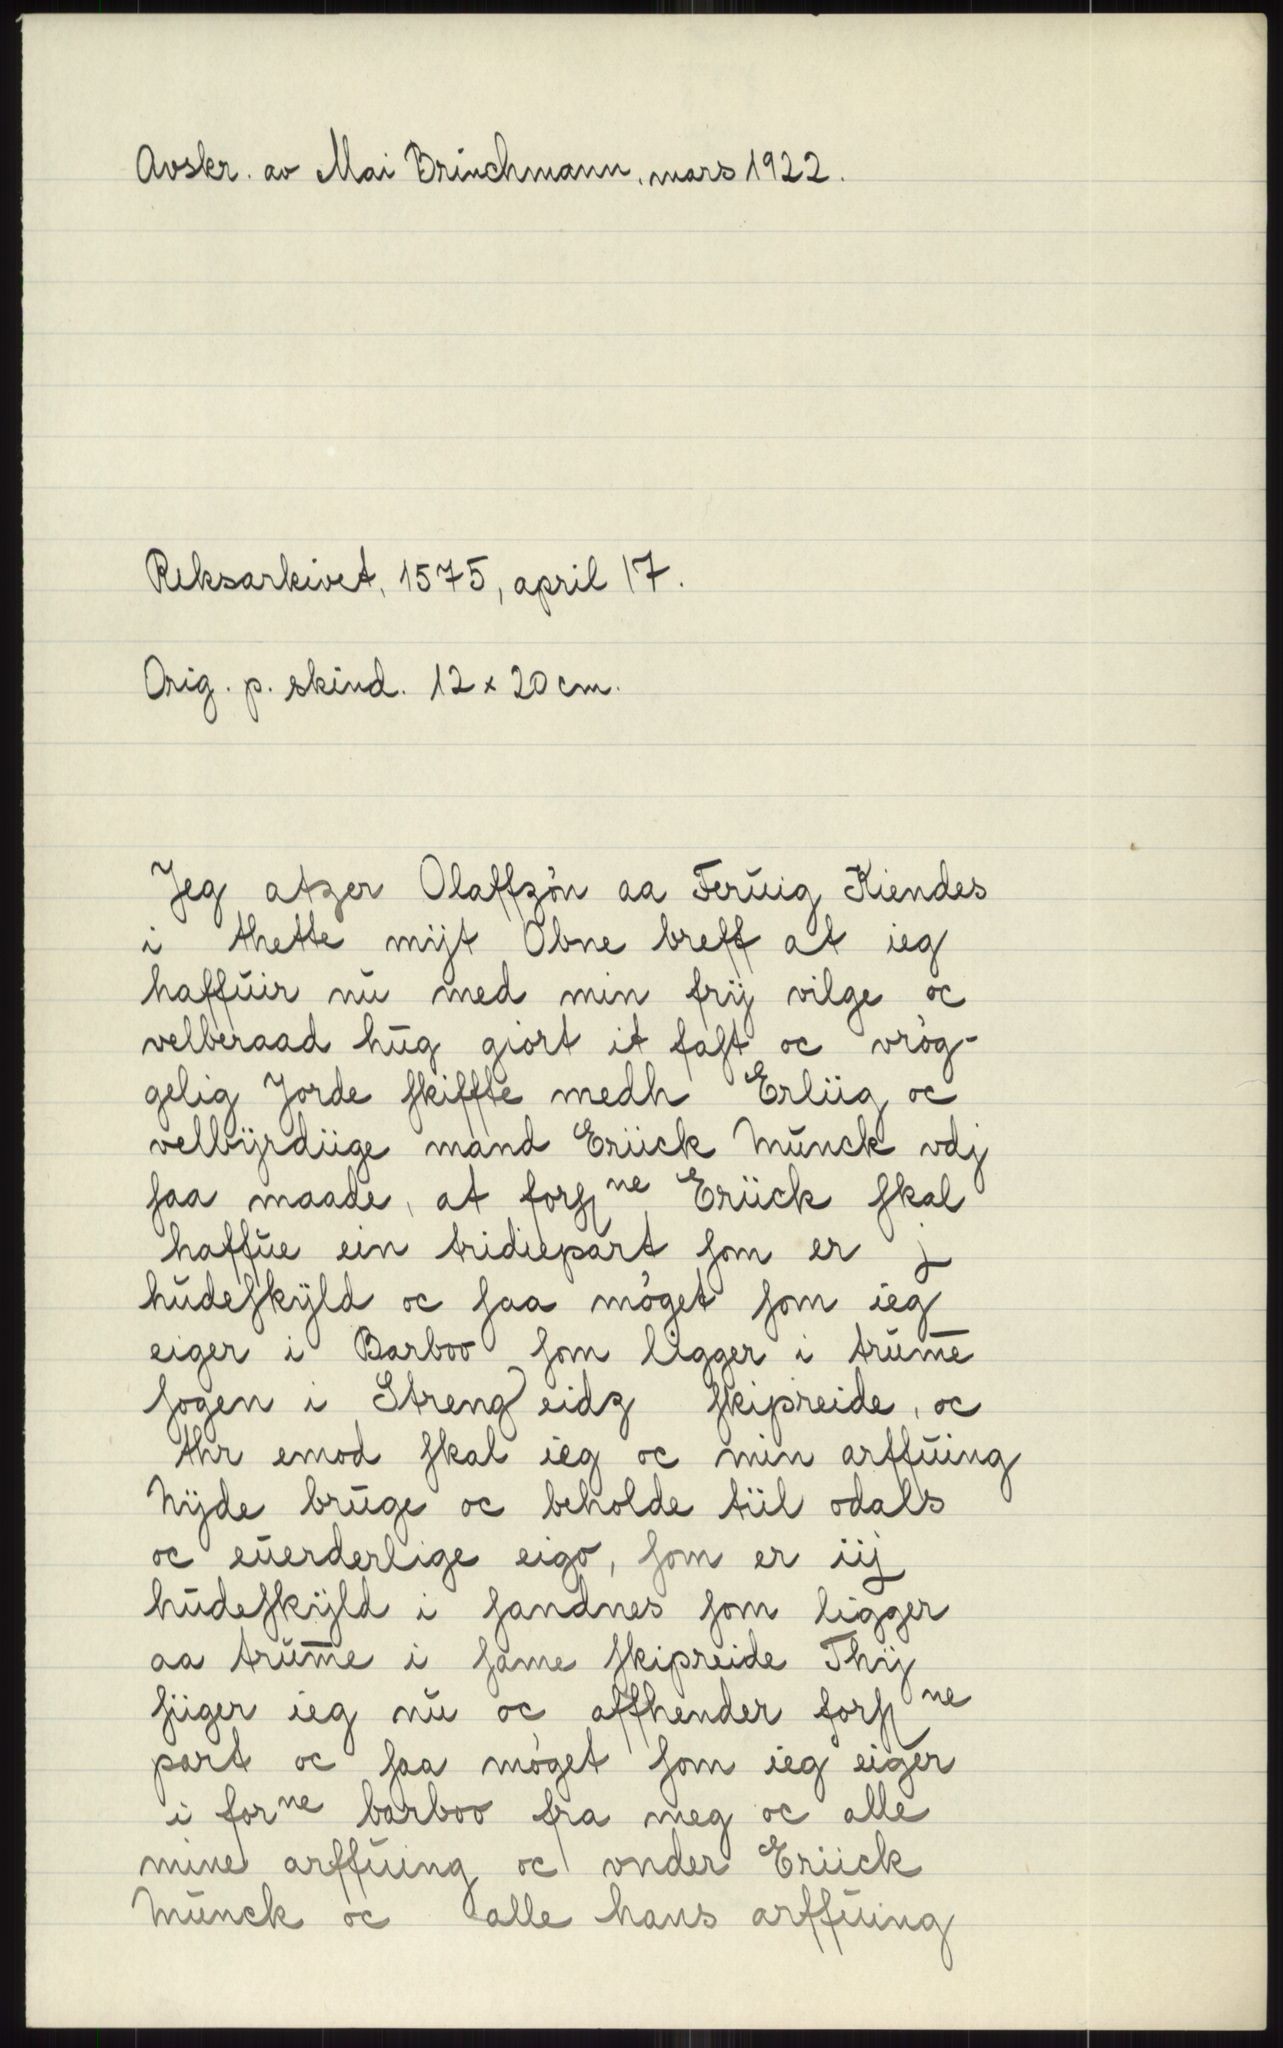 Avskr. av Mai Brinchmann, mars 1922.
Riksarkivet, 1575, april 17.
Orig. p. skind. 12 x 20 cm.
Jeg atzer Olaffzón aa Feruig Kiendes
i thette mijt Obne breff at ieg
haffuir nu med min frij vilge oc
velberaad hug giort it fast oc vróg-
gelig Jorde skiffte medh Erliig oc
velbÿrdiige mand Eriick Munck vdj
saa maade, at forsne Eriick skal
haffue ein tridiepart som er j
hudeskÿld oc saa móget som ieg
eiger i Barboo som ligger i trume
sogen i Strengeidz skipreide, oc
thr emod skal ieg oc min arffuing
Nÿde bruge oc beholde tiil odals
oc euerderlige eigo, som er iij
hudeskÿld i sandnes som ligger
aa trume i same skipreide Thij
siiger ieg nu oc affhender forsne
part oc saa móget som ieg eiger
i forne barboo fra meg oc alle
mine arffuing oc vnder Eriick
Munck oc alle hans arffuing